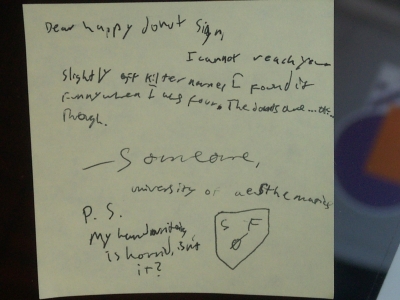 Dear happy donut sign,
I cannot reach your
slightly off kilter names, I found it
funny when I was four. The donuts are...
though.
—Someone,
university of aesthematics
P. S.
My handwriting
is horrid, isn't
it?
S F